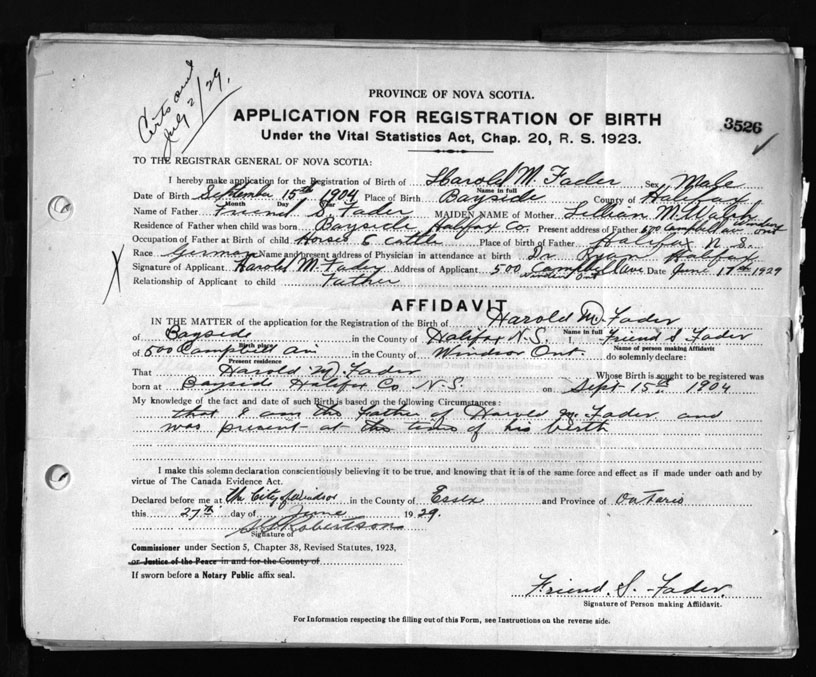 Certs and
July 2/29.
PROVINCE OF NOVA SCOTIA.
APPLICATION FOR REGISTRATION OF BIRTH
3526
Under the Vital Statistics Act, Chap. 20, R. S. 1923.
TO THE REGISTRAR GENERAL OF NOVA SCOTIA:
I hereby make application for the Registration of Birth of Harold M. Fader Sex Male
Name in full
Date of Birth September 15th 1904 Place of Birth Bayside County of Halifax
Month Day
Name of Father Friend S. Fader MAIDEN NAME of Mother Lillian M. Walsh
Residence of Father when child was born Bayside Halifax Co. Present address of Father 500 Campbell Windsor Ont
Occupation of Father at Birth of child Horses & Cattle Place of birth of Father Halifax N. S.
Race German Name and present address of Physician in attendance at birth Dr Halifax
Signature of Applicant Harold M. Fader Address of Applicant 500 Campbell Ave Date June 17th 1929
Windsor Ont
Relationship of Applicant to child Father
AFFIDAVIT
IN THE MATTER of the application for Registration of the Birth of Harold M. Fader
Name in full
of Bayside in the County of Halifax N.S. I, Friend S. Fader
Birth place Name of person making Affidavit
of 500 Campbell in the County of Windsor Ont. do solemnly declare:
Present residence
That Harold M. Fader Whose Birth is sought to be registered was
born at Bayside Halifax Co N.S. on Sept 15th 1904
My knowledge of the fact and date of such Birth is based on the following Circumstances:
that I am the Father of Harold M. Fader and
was present at the time of his birth
I make this solemn declaration conscientiously believing it to be true, and knowing that it is of the same force and effect as if made under oath and by
virtue of The Canada Evidence Act.
Declared before me at the City of Windsor in the County of Essex and Province of Ontario
this 27th day of June 1929.
Robertson
Signature of
Commissioner under Section 5, Chapter 38, Revised Statutes, 1923,
or Justice of the Peace in and for the County of
If sworn before a Notary Public affix seal.
Friend. S. Fader.
Signature of Person making Affidavit.
For Information respecting the filling out of this Form, see Instructions on the reverse side.